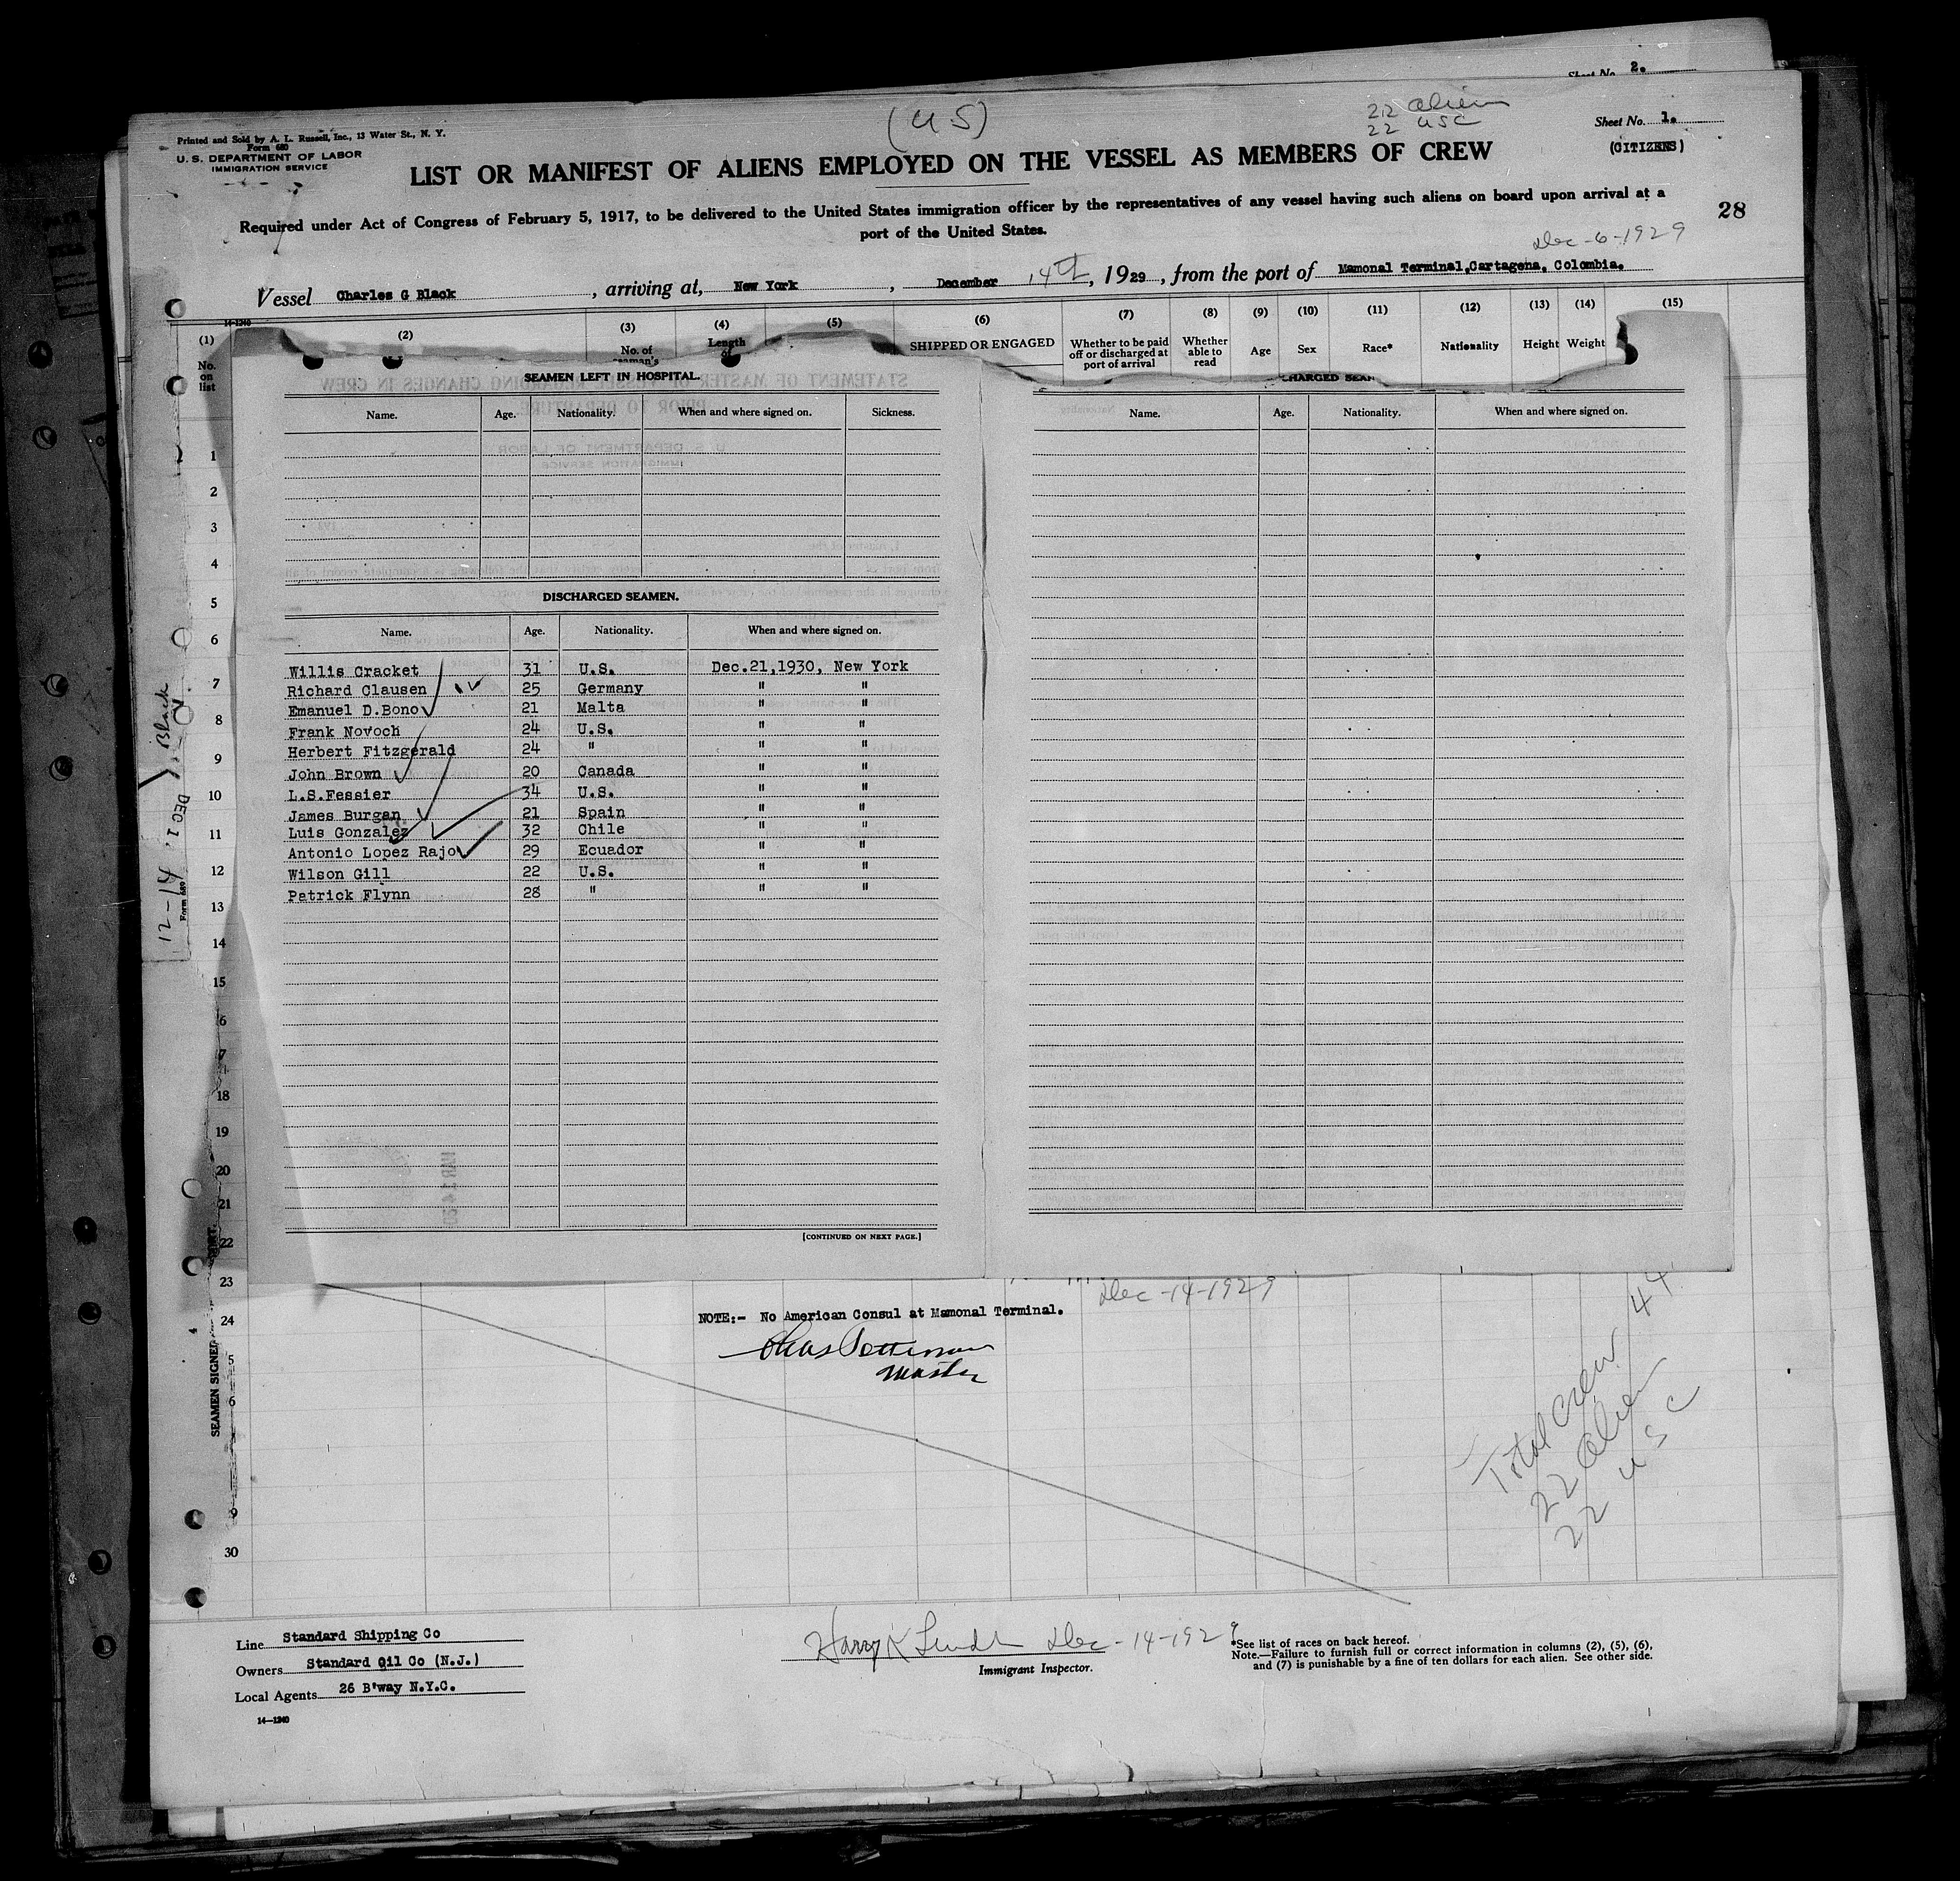 Sheet No. 2.
(US)
22 alien
22 USC
Sheet No. 1.
(CITIZENS)
Printed and Sold by A. L. Russell, Inc., 13 Water St., N. Y.
Form 680
U. S. DEPARTMENT OF LABOR
IMMIGRATION SERVICE
LIST OR MANIFEST OF ALIENS EMPLOYED ON THE VESSEL AS MEMBERS OF CREW
Required under Act of Congress of February 5, 1917, to be delivered to the United States immigration officer by the representatives of any vessel having such aliens on board upon arrival at a
port of the United States.
28
Dec-6-1929
Vessel Charles G Black, arriving at, New York, December 14th, 1929, from the port of Mamonal Terminal, Cartagena, Colombia.
14-1240
(1) (2) (3) (4) (5) (6) (7) (8) (9) (10) (11) (12) (13) (14) (15)
No. on list
No. of seaman's
Length of
SHIPPED OR ENGAGED
Whether to be paid off or discharged at port of arrival
Whether able to read
Age Sex Race* Nationality Height Weight
SEAMEN LEFT IN HOSPITAL.
Name. Age. Nationality. When and where signed on. Sickness.
Name. Age. Nationality. When and where signed on.
DISCHARGED SEAMEN.
Name. Age. Nationality. When and where signed on.
Willis Cracket 31 U.S. Dec.21,1930, New York
Richard Clausen 25 Germany " "
Emanuel D.Bono 21 Malta " "
Frank Novoch 24 U.S. " "
Herbert Fitzgerald 24 " " "
John Brown 20 Canada " "
L.S.Fessier 34 U.S. " "
James Burgan 21 Spain " "
Luis Gonzalez 32 Chile " "
Antonio Lopez Rajo 29 Ecuador " "
Wilson Gill 22 U.S. " "
Patrick Flynn 28 " " "
[CONTINUED ON NEXT PAGE.]
1
2
3
4
5
6
7
8
9
10
11
12
13
14
15
6
7
18
19
20
21
22
23
24
5
6
9
30
Black
12-14
Form 689
SEAMEN SIGNED
Dec-14-1929
NOTE:- No American Consul at Mamonal Terminal.
Master
Total crew 44
22 alien
22 USC
Line Standard Shipping Co
Owners Standard Oil Co (N.J.)
Local Agents 26 B'way N.Y.C.
14-1240
Harry K Dec-14-1929
Immigrant Inspector.
*See list of races on back hereof.
Note.—Failure to furnish full or correct information in columns (2), (5), (6),
and (7) is punishable by a fine of ten dollars for each alien. See other side.